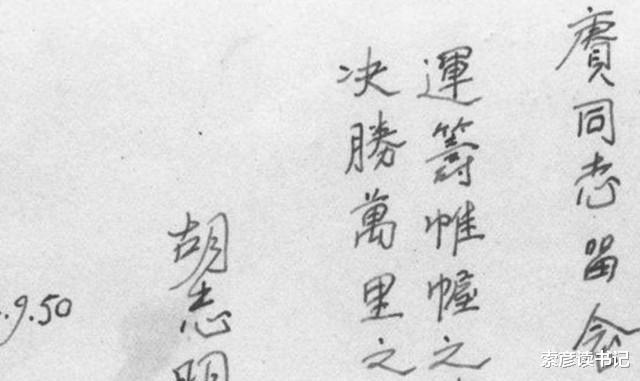 賡同志留念
運籌帷幄之
决勝萬里之
胡志明
.9.50
索彦读书记